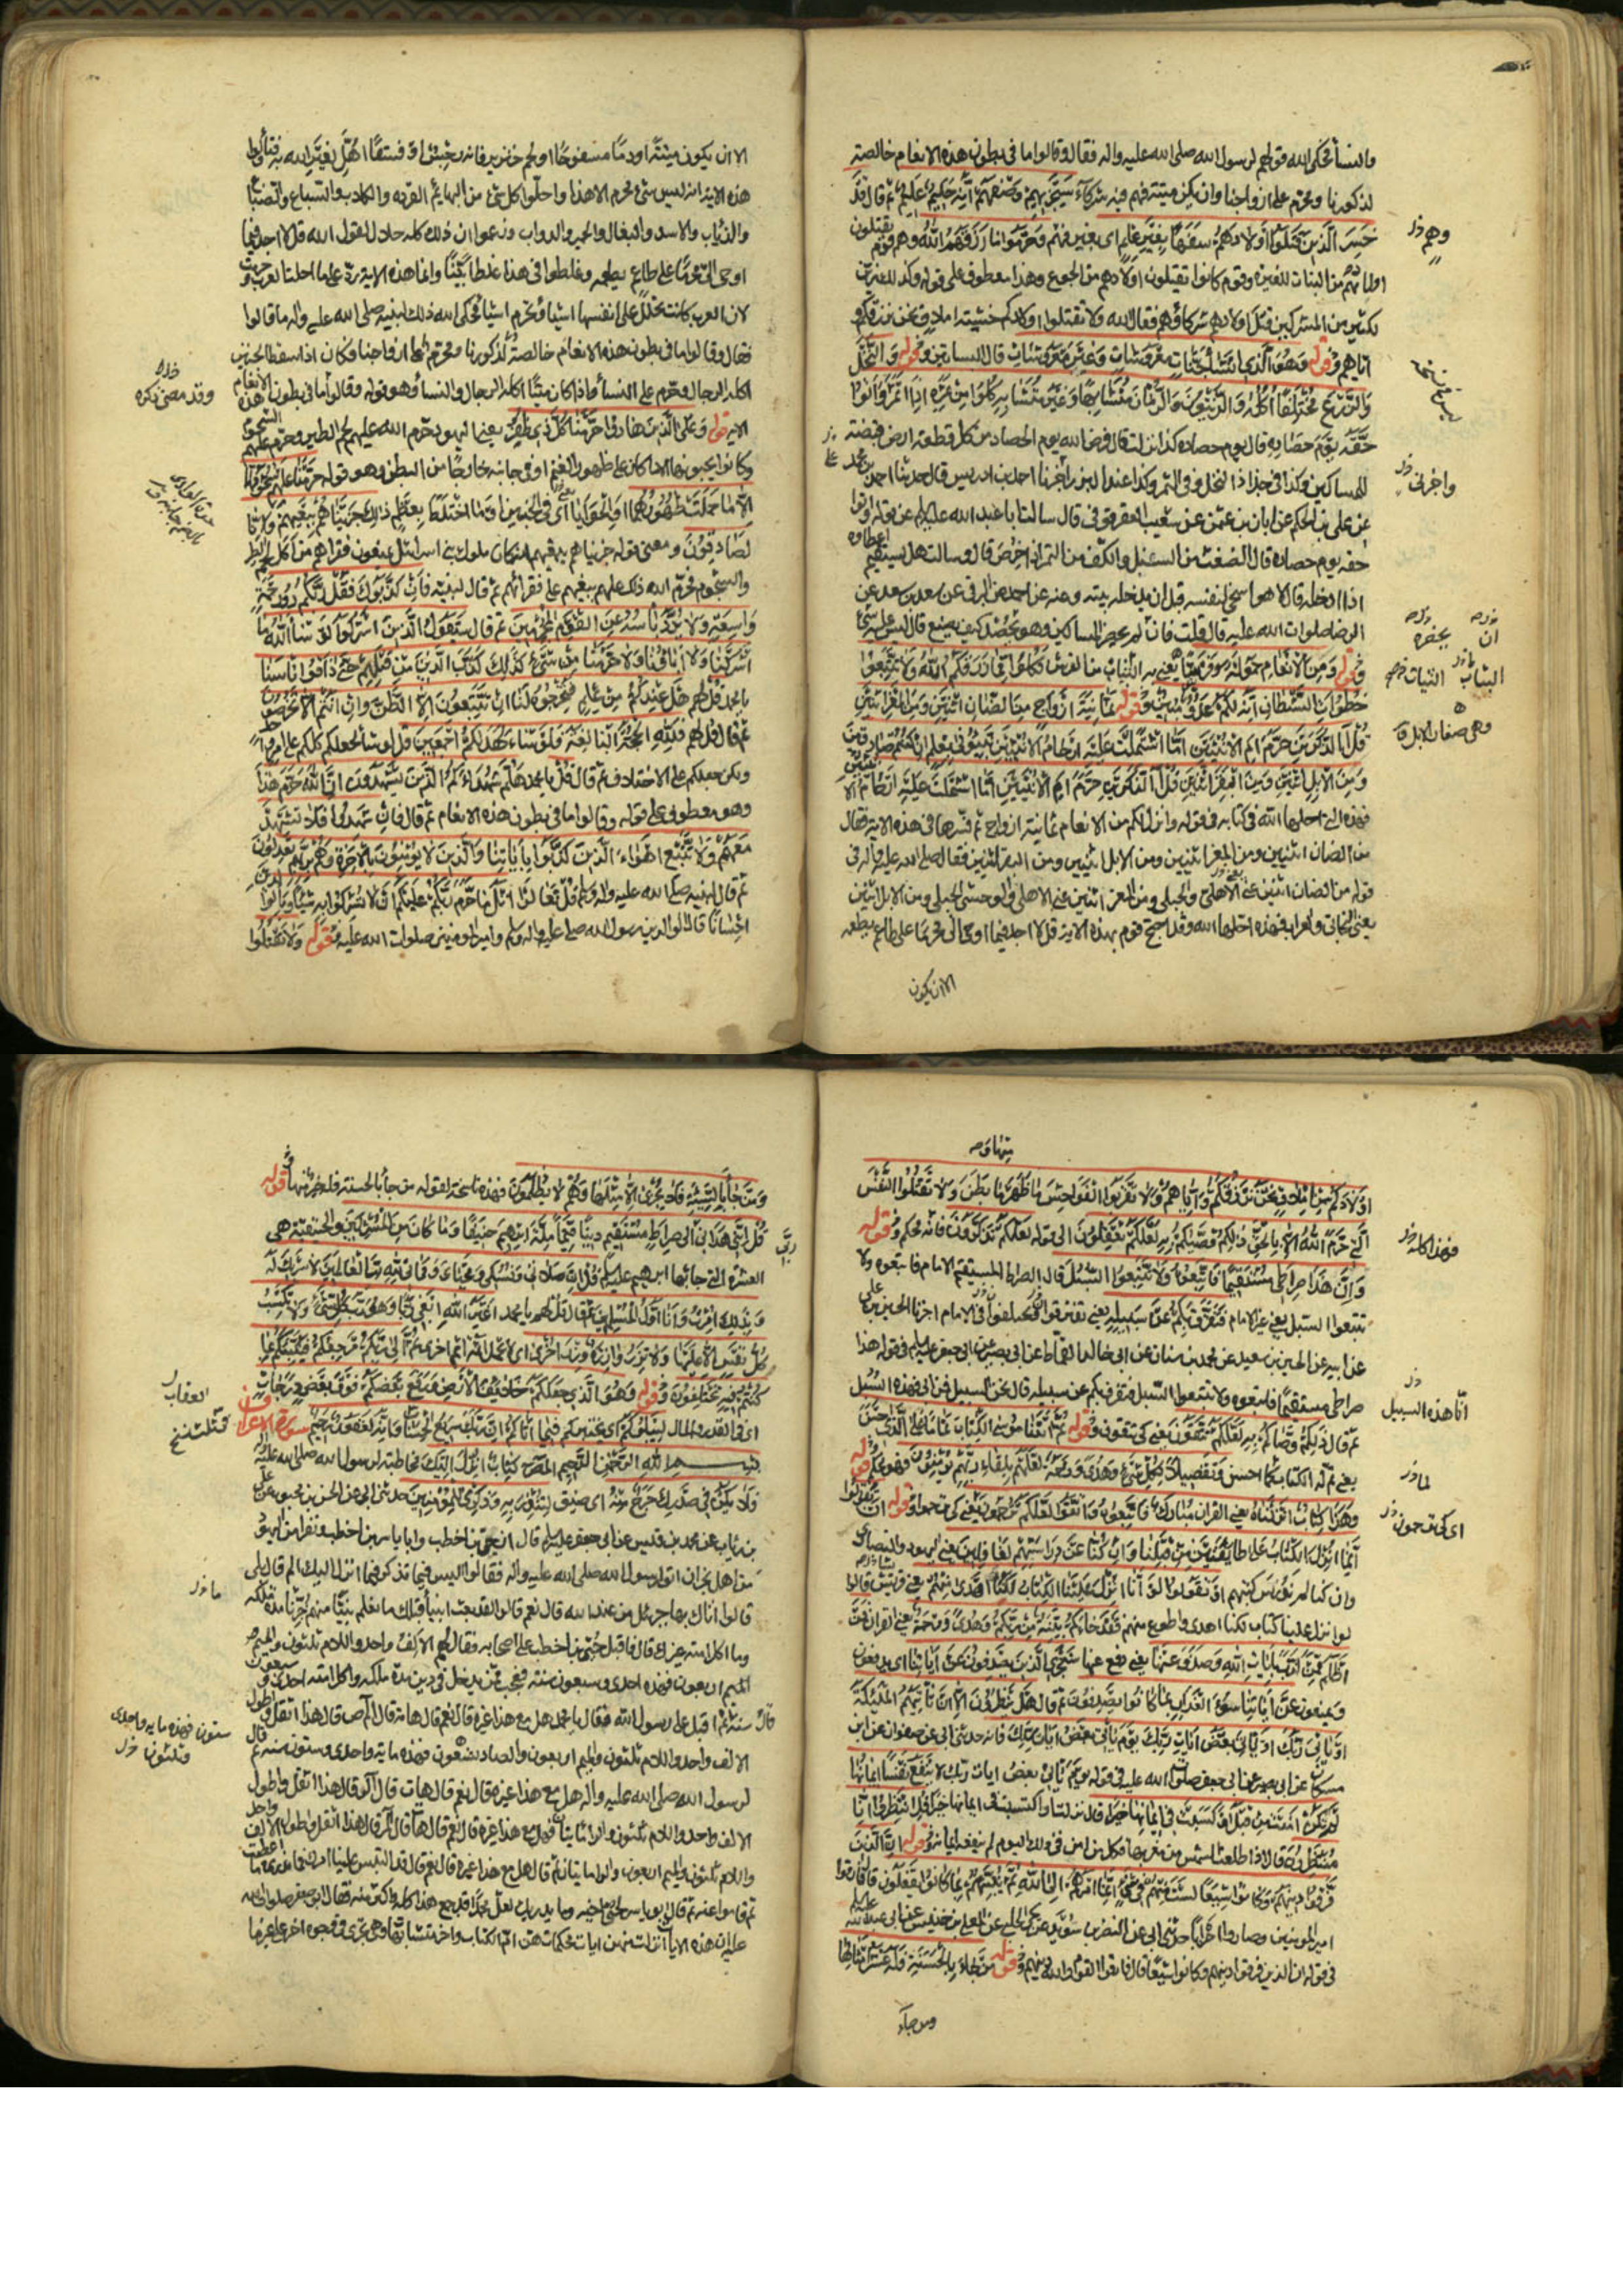 والنسأ فحكى الله قولهم لرسول الله صلى الله عليه واله فقال وقالوا ما في بطون هذه الانعام خالصة
لذكورنا ومحرم على ازواجنا وان يكن ميتة فهم فيه شركاء سيجزيهم وصفهم انه حكيم عليم ثم قال قد
خسر الذين قتلوا اولادهم سفها بغير علم اى بغير فهم وحرموا ما رزقهم الله وهم قوم يقتلون
اولادهم من البنات للغيرة وقوم كانوا يقتلون اولادهم من الجوع وهذا معطوف على قوله وكذلك زين
لكثير من المشركين قتل اولادهم شركاؤهم فقال الله ولا تقتلوا اولادكم خشية املاق نحن نرزقكم و
اياهم وقوله وهو الذي انشأ جنات معروشات وغير معروشات قال البساتين وقوله والنخل
والزرع مختلفا اكله والزيتون والرمان متشابها وغير متشابه كلوا من ثمره اذا اثمر واتوا
حقه يوم حصاده قال يوم حصاده كذا نزلت قال فرض الله يوم الحصاد من كل قطعة ارض قبضة
للمساكين وكذا في جذاذ النخل وفي التمر وكذا عند البذر اخبرنا احمد بن ادريس قال حدثنا احمد بن محمد
عن علي بن الحكم عن ابان بن عثمن عن شعيب العقرقوفي قال سالت ابا عبد الله عليه السلام عن قوله واتوا
حقه يوم حصاده قال الضغث من السنبل والكف من التمر اذا خرص قال وسالت هل يستقيم اعطاؤه
اذا ادخله قال لا هو اسخى لنفسه قبل ان يدخله بيته وعنه عن احمد عن البرقي عن سعد بن سعد عن
الرضا صلوات الله عليه قال قلت فان لم يحضر المساكين وهو يحصد كيف يصنع قال ليس عليه شئ
وقوله ومن الانعام حمولة وفرشا يعني به الثياب من الفرش كلوا مما رزقكم الله ولا تتبعوا
خطوات الشيطان انه لكم عدو مبين وقوله ثمانية ازواج من الضان اثنين ومن المعز اثنين
قل آلذكرين حرم ام الانثيين اما اشتملت عليه ارحام الانثيين نبئوني بعلم ان كنتم صادقين
ومن الابل اثنين ومن البقر اثنين قل آلذكرين حرم ام الانثيين اما اشتملت عليه ارحام الا
فهذه التي احلها الله في كتابه في قوله وانزل لكم من الانعام ثمانية ازواج ثم فسرها في هذه الاية فقال
من الضان اثنين ومن المعز اثنين ومن الابل اثنين ومن البقر اثنين فقال صلى الله عليه واله في
قوله من الضان اثنين عنى الاهلي والجبلي ومن المعز اثنين عنى الاهلي والوحشي الجبلي ومن الابل اثنين
يعني البخاتي والعراب فهذه احلها الله وقد احتج قوم بهذه الاية قل لا اجد فيما اوحى الى محرما على طاعم يطعمه
الا ان يكون
وهم خ ل
واخبرني خ ل
البنات الثياب
الا ان يكون ميتة او دما مسفوحا او لحم خنزير فانه رجس او فسقا اهل لغير الله به فتاولوا
هذه الاية انه ليس شئ محرم الا هذا واحلوا كل شئ من البهايم القردة والكلاب والسباع والضباع
والذئاب والاسد والبغال والحمير والدواب وزعموا ان ذلك كله حلال لقول الله قل لا اجد فيما
اوحى الى محرما على طاعم يطعمه وغلطوا في هذا غلطا بينا وانما هذه الاية رد على ما احلت العرب وحرمت
لان العرب كانت تحلل على انفسها اشيأ وتحرم اشيأ فحكى الله ذلك لنبيه صلى الله عليه واله ما قالوا
فقال وقالوا ما في بطون هذه الانعام خالصة لذكورنا ومحرم على ازواجنا وكان اذا سقط الجنين
اكله الرجال وحرم على النسأ واذا كان ميتا اكله الرجال والنسأ وهو قوله وقالوا ما في بطون هذه الانعام
الاية قوله وعلى الذين هادوا حرمنا كل ذي ظفر يعني اليهود حرم الله عليهم لحم الطير وحرم عليهم الشحوم
وكانوا يحبونها الا ما كان على ظهور الغنم او في جانبه خارجا من البطن وهو قوله حرمنا عليهم شحومهما
الا ما حملت ظهورهما او الحوايا اى في الجنبين او ما اختلط بعظم ذلك جزيناهم ببغيهم وانا
لصادقون ومعنى قوله جزيناهم ببغيهم انه كان ملوك بني اسرائيل يمنعون فقراهم من اكل لحم الطير
والشحوم فحرم الله ذلك عليهم ببغيهم على فقرائهم ثم قال لنبيه فان كذبوك فقل ربكم ذو رحمة
واسعة ولا يرد باسه عن القوم المجرمين ثم قال سيقول الذين اشركوا لو شأ الله ما
اشركنا ولا اباؤنا ولا حرمنا من شئ كذلك كذب الذين من قبلهم حتى ذاقوا باسنا
يا محمد قل لهم هل عندكم من علم فتخرجوه لنا ان تتبعون الا الظن وان انتم الا تخرصون
ثم قال قل لهم فلله الحجة البالغة فلو شاء لهداكم اجمعين قل لو شأ لجعلكم كلكم على امر واحد
ولكن جعلكم على الاختلاف ثم قال قل يا محمد هلم شهداءكم الذين يشهدون ان الله حرم هذا
وهو معطوف على قوله وقالوا ما في بطون هذه الانعام ثم قال فان شهدوا فلا تشهد
معهم ولا تتبع اهواء الذين كذبوا باياتنا والذين لا يؤمنون بالاخرة وهم بربهم يعدلون
ثم قال لنبيه صلى الله عليه واله وسلم قل تعالوا اتل ما حرم ربكم عليكم الا تشركوا به شيئا وبالوالدين
احسانا قال الوالدين رسول الله صلى عليه واله وسلم وامير المؤمنين صلوات الله عليه وقوله ولا تقتلوا
وقد مضى ذكره
اولادكم من املاق نحن نرزقكم واياهم ولا تقربوا الفواحش ما ظهر منها وما بطن ولا تقتلوا النفس
التي حرم الله الا بالحق ذلكم وصيكم به لعلكم تعقلون الى قوله لعلكم تذكرون فانه محكم وقوله
وان هذا صراطي مستقيما فاتبعوه ولا تتبعوا السبل قال الصراط المستقيم الامام فاتبعوه ولا
تتبعوا السبل يعني غير الامام فتفرق بكم عن سبيله يعني تفترقوا وتختلفوا في الامام اخبرنا الحسن بن علي
عن ابيه عن الحسين بن سعيد عن محمد بن سنان عن ابي خالد القماط عن ابي بصير عن ابي جعفر عليه السلام في قوله هذا
صراطي مستقيما فاتبعوه ولا تتبعوا السبل فتفرق بكم عن سبيله قال نحن السبيل فمن ابى فهذه السبل
ثم قال ذلكم وصاكم به لعلكم تتقون يعني كي تتقون وقوله ثم اتينا موسى الكتاب تماما على الذي احسن
يعني تم له الكتاب لما احسن وتفصيلا لكل شئ وهدى ورحمة لعلهم بلقاء ربهم يؤمنون فهو محكم وقوله
وهذا كتاب انزلناه يعني القران مبارك فاتبعوه واتقوا لعلكم ترحمون يعني كي ترحموا وقوله ان تقولوا
انما انزل الكتاب على طايفتين من قبلنا وان كنا عن دراستهم لغافلين يعني اليهود والنصارى
وان كنا لم ندرس كتبهم او تقولوا لو انا انزل علينا الكتاب لكنا اهدى منهم يعني قريش قالوا
لو انزل علينا كتاب لكنا اهدى واطوع منهم فقد جاءكم بينة من ربكم وهدى ورحمة يعني القران فمن
اظلم ممن كذب بايات الله وصدف عنها يعني دفع عنها سنجزي الذين يصدفون عن اياتنا اى يدفعون
ويمنعون عن اياتنا سوء العذاب بما كانوا يصدفون ثم قال هل ينظرون الا ان تاتيهم الملئكة
او ياتي ربك او ياتي بعض ايات ربك يوم ياتي بعض ايات ربك فانه حدثني ابي عن صفوان عن ابن
مسكان عن ابي بصير عن ابي جعفر صلوات الله عليه في قوله يوم ياتي بعض ايات ربك لا ينفع نفسا ايمانها
لم تكن امنت من قبل او كسبت في ايمانها خيرا قال نزلت او اكتسبت في ايمانها خيرا قل انتظروا انا
منتظرون قال اذا طلعت الشمس من مغربها فكل من امن في ذلك اليوم لم ينفعه ايمانه وقوله ان الذين
فرقوا دينهم وكانوا شيعا لست منهم في شئ انما امرهم الى الله ثم ينبئهم بما كانوا يفعلون قال فارقوا
امير المؤمنين وصاروا احزابا حدثني ابي عن النضر بن سويد عن يحيى الحلبي عن المعلى بن خنيس عن ابي عبد الله
في قوله ان الذين فرقوا دينهم وكانوا شيعا قال فارقوا القوم والله دينهم وقوله من جاء بالحسنة فله عشر امثالها
ومن جاء
انا هذه السبيل
اى كي ترحمون
ومن جا بالسيئة فلا يجزى الا مثلها وهم لا يظلمون فهذه ناسخة لقوله من جا بالحسنة فله خير منها وقوله
قل انني هداني ربي الى صراط مستقيم دينا قيما ملة ابرهيم حنيفا وما كان من المشركين والحنيفية هي
العشرة التي جاء بها ابرهيم عليه السلام قل ان صلاتي ونسكي ومحياي ومماتي لله رب العالمين لا شريك له
وبذلك امرت وانا اول المسلمين ثم قال قل لهم يا محمد اغير الله ابغي ربا وهو رب كل شئ ولا تكسب
كل نفس الا عليها ولا تزر وازرة وزر اخرى اى لا تحمل اثمة اثم اخرى ثم الى ربكم مرجعكم فينبئكم بما
كنتم فيه تختلفون وقوله وهو الذي جعلكم خلائف الارض ورفع بعضكم فوق بعض درجات
اى في القدر والمال ليبلوكم اى يختبركم فيما اتاكم ان ربك سريع الحساب وانه لغفور رحيم سورة الاعراف
بسم الله الرحمن الرحيم المص كتاب انزل اليك مخاطبة لرسول الله صلى الله عليه
فلا يكن في صدرك حرج منه اى ضيق لتنذر به وذكرى للمؤمنين حدثني ابي عن الحسن بن محبوب عن علي
بن رئاب عن محمد بن قيس عن ابي جعفر عليه السلام قال ان حي بن اخطب وابا ياسر بن اخطب ونفرا من اليهود
من اهل نجران اتوا رسول الله صلى الله عليه واله فقالوا اليس فيما تذكر فيما انزل اليك الم قال بلى
قالوا اتاك بها جبرئيل من عند الله قال نعم قالوا لقد بعث انبيأ قبلك ما نعلم نبيا منهم اخبرنا مدة ملكه
وما اكل امته غيرك قال فاقبل حي بن اخطب على اصحابه فقال لهم الالف واحد واللام ثلثون والميم
الميم اربعون فهذه احدى وسبعون سنة فعجب ممن يدخل في دين مدة ملكه واكل امته احدى وسبعون
سنة ثم اقبل على رسول الله فقال يا محمد هل مع هذا غيره قال نعم قال هاته قال المص قال هذا اثقل واطول
الالف واحد واللام ثلثون والميم اربعون والصاد تسعون فهذه ماية واحدى وستون سنة ثم قال
لرسول الله صلى الله عليه واله هل مع هذا غيره قال نعم قال هات قال الر قال هذا اثقل واطول
الالف واحد واللام ثلثون والرا مائتا فهل مع هذا غيره قال نعم قال هات قال المر قال هذا اثقل واطول الالف واحد
واللام ثلثون والميم اربعون والرا مايتان ثم قال هل مع هذا غيره قال نعم قال قد التبس علينا امرك فما ندري ما اعطيت
ثم قاموا عنه ثم قال ابو ياسر لحي اخيه وما يدريك لعل محمدا قد جمع هذا كله واكثر منه فقال ابو جعفر صلوات الله
عليه ان هذه الايات انزلت منهن ايات محكمات هن ام الكتاب واخر متشابهات وهي تجرى في وجوه اخر على غير ما
ستون فهذه ماية واحدى
وثلثون خ ل